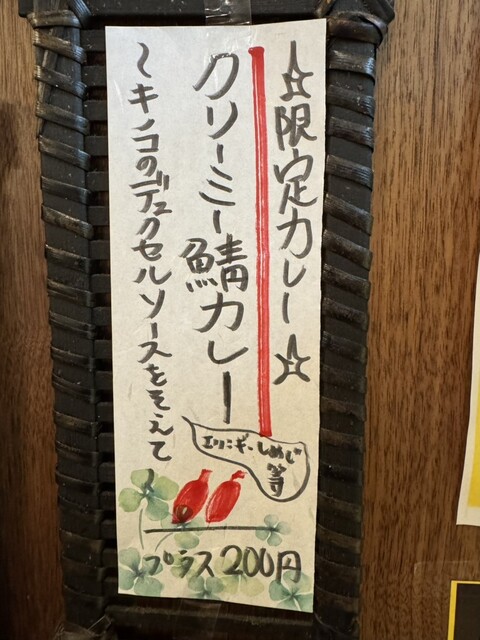 ☆限定カレー☆
クリーミー鯖カレー
エリンギーしめじ
等
〜キノコのデュクセルソースをそえて〜
プラス200円